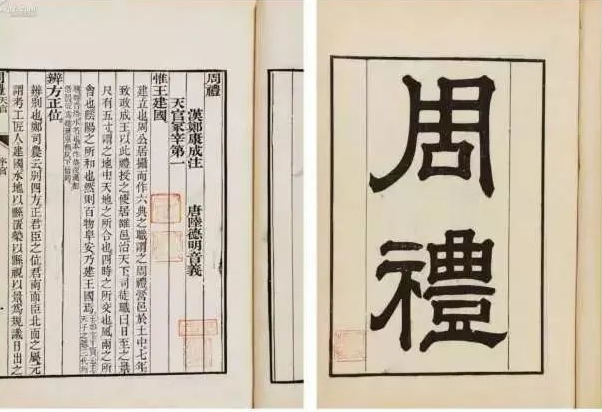 周禮
周禮
漢鄭康成注 唐陸德明音義
天官冢宰第一
惟王建國
建立也周公居攝而作六典之職謂之周禮營邑於土中七年
致政成王以此禮授之使居雒邑治天下司徒職曰日至之景
尺有五寸謂之地中天地之所合也四時之所交也風雨之所
會也陰陽之所和也然則百物阜安乃建王國焉
辨方正位
辨別也鄭司農云別四方正君臣之位君南面臣北面之屬元
謂考工匠人建國水地以縣置槷以縣視以景爲規識日出之
周禮 天官 序官